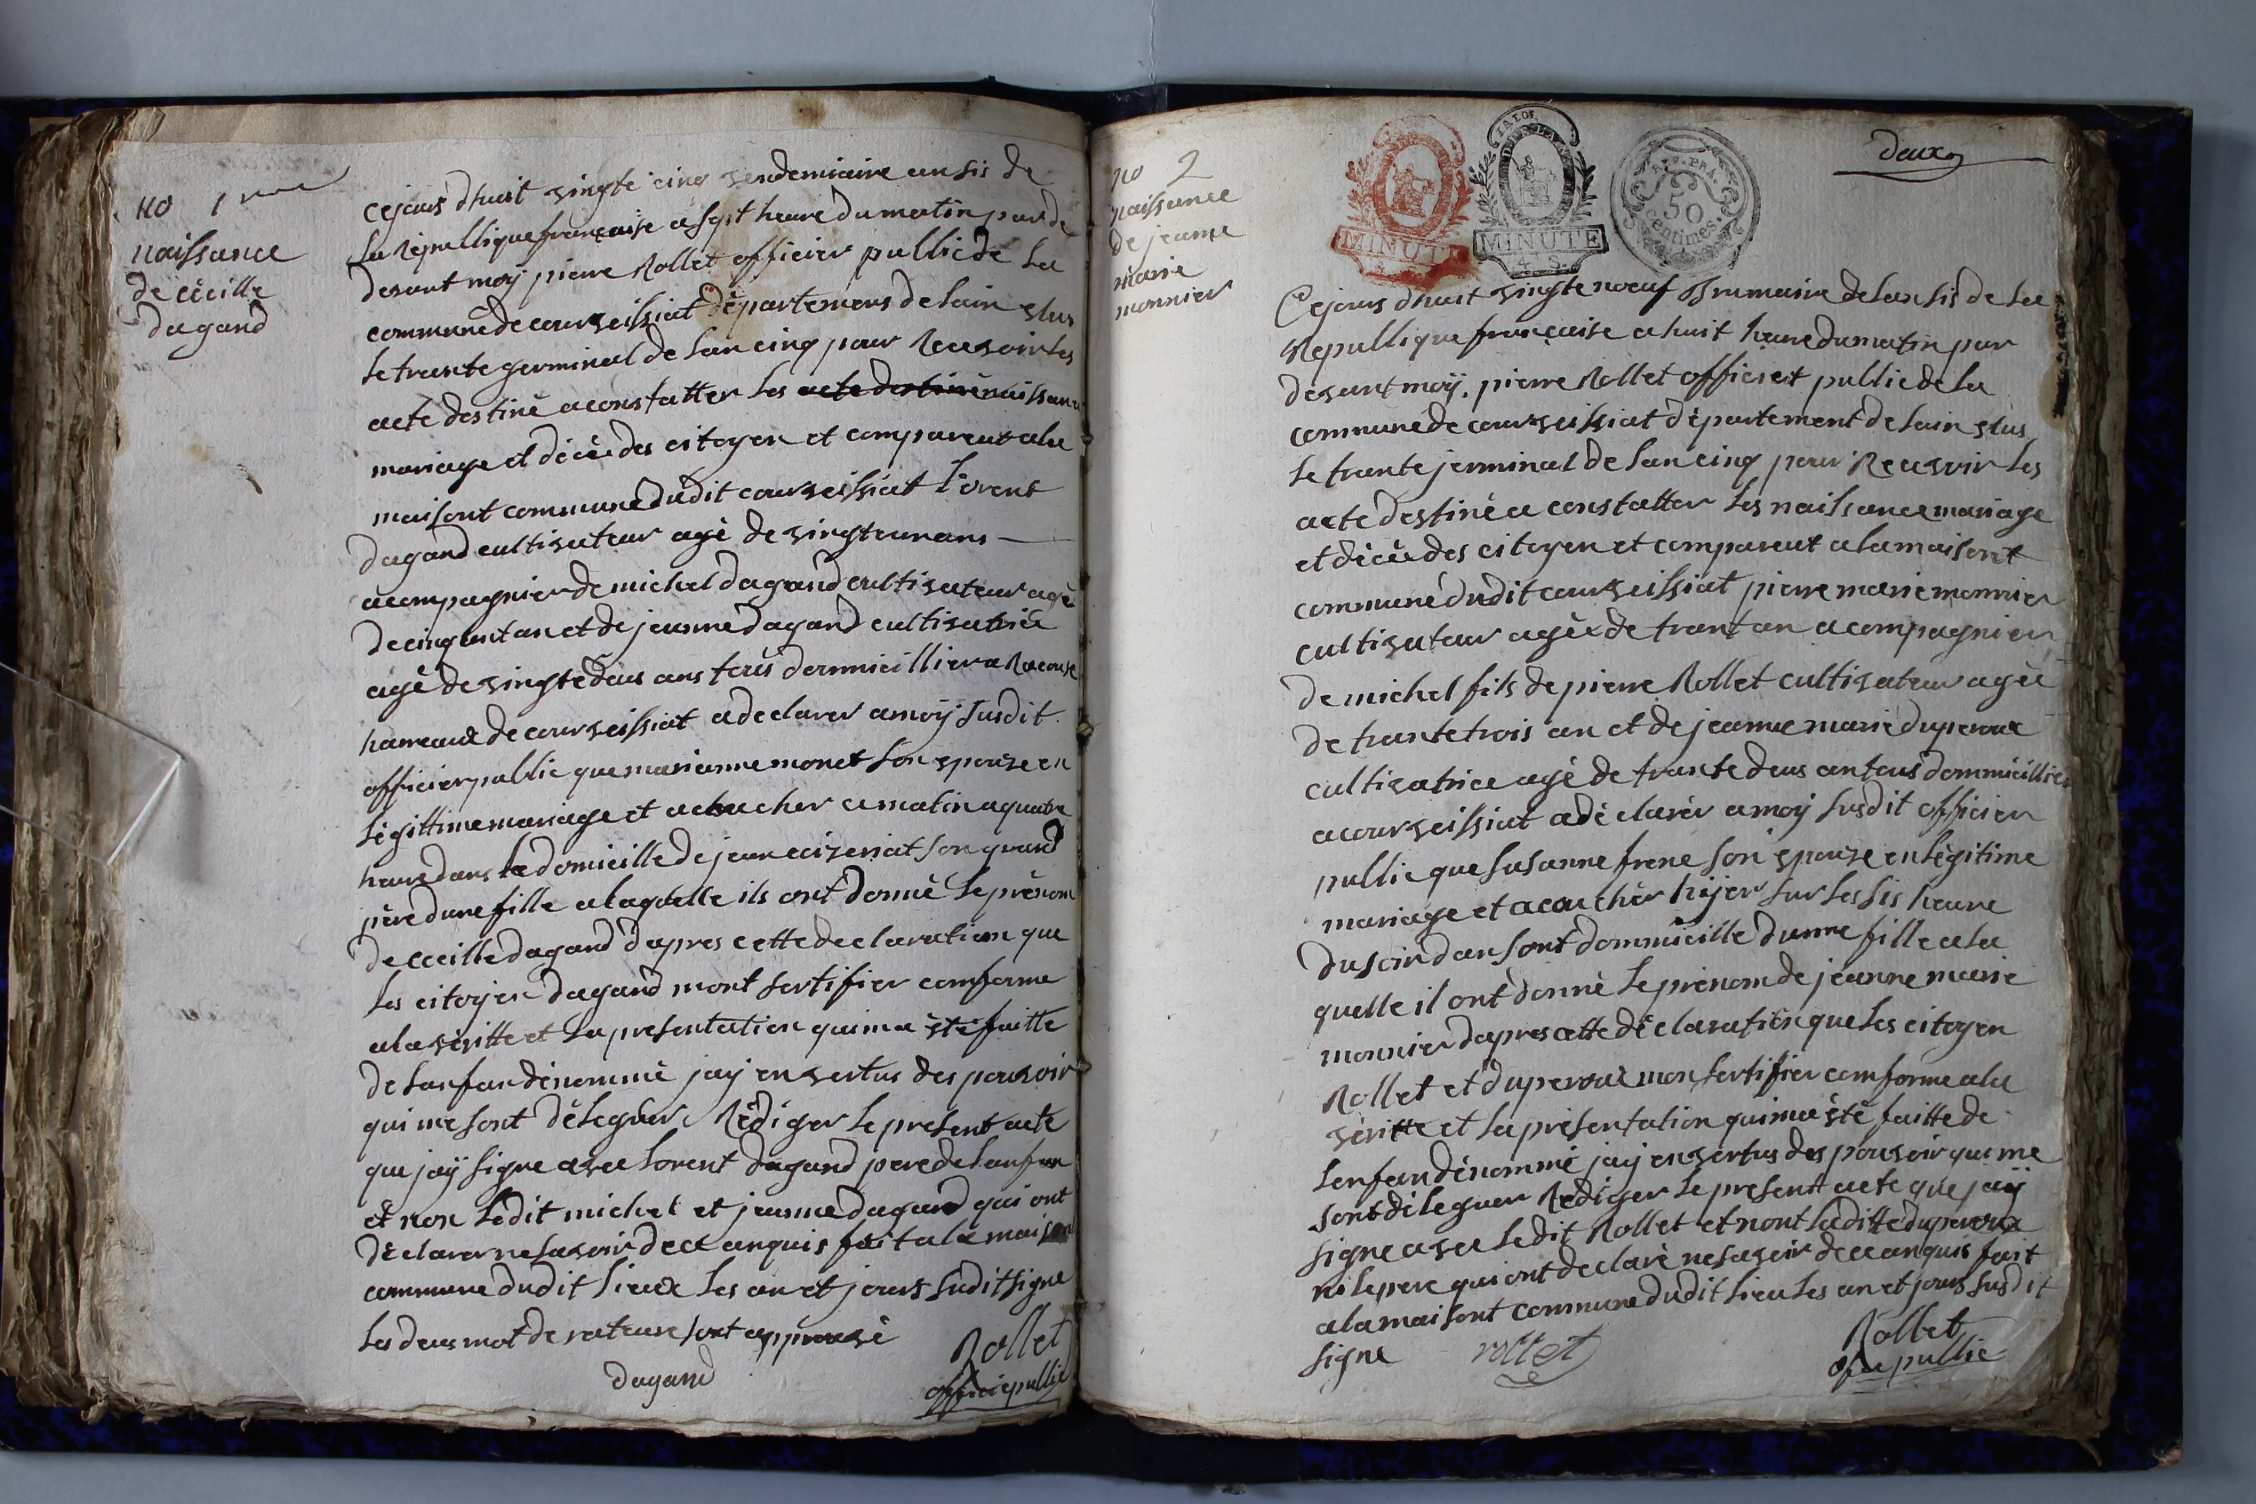 no 1
naissance
de cécille
dagand
cejours dhuit vingte cinq vendemiaire an sis de
la Républlique française a sept heure du matin par de
devant moÿ pierre Rollet officier publlic de la
commune de courveissiat départemens de lain elus
le trante germinal de lan cinq pour Recevoir les
acte destiné a constatter les acte destiné naissance
mariage et décè des citoyen et comparent a la
maisont commune dudit courveissiat Lorent
dagand cultivateur agé de vingt eun ans
acompagnier de michel dagand cultivateur agé
de cinquant an et de jeanne dagand cultivatrice
agé de vingte deus ans tous dommicillier a Racouse
hameaux de courveissiat a declarer a moÿ susdit
officier publlic que marianne monet son epouze en
légittime mariage et acoucher ce matin a quatre
heure dans le domicille de jean cizeriat son grand
père dune fille a laquelle ils ont donné le prénom
de cecille dagand dapres cette declaration que
les citoyen dagand mont sertifier comforme
a la véritte et la presentation qui ma été faitte
de lanfan dénommé jaÿ en vertus des pouvoir
qui me sont déléguer Rédiger le present acte
que jaÿ signe avec lorent dagand pere de lanfan
et non ledit michel et jeanne dagand qui ont
déclarer ne savoir de ce anquis fait a la maison
commune dudit lieux les an et jours sudit signe
les deus mot de rature sont approuvé
dagand
Rollet
officie publlic
no 2
naissance
de jeanne
marie
monnier
MINUTE
LA LOI
MINUTE
4. S.
REP. FRA.
50
centimes
deux
Cejours dhuit vingte noeuf Brumaire de lan sis de la
Republlique française a huit heure du matin par
devant moÿ pierre Rollet officient publlic de la
commune de courveissiat département de lain elus
le trante jerminal de lan cinq pour Recevoir les
acte destiné a constatter les naissance mariage
et décè des citoyen et comparent a la maisont
commune dudit courveissiat pierre marie monnier
cultivateur agée de trant an acompagnier
de michel fils de pierre Rollet cultivateur agée
de trante trois an et de jeanne marie duperoux
cultivatrice agé de trante deus an tous dommicillier
a courveissiat a déclarér a moÿ susdit officier
publlic que susanne frene son epouze en légitime
mariage et acouchér hijer sur les sis heure
du soir dan sont dommicille dunne fille a la
quelle il ont donné le prénom de jeanne marie
monnier dapres cette déclaration que les citoyen
Rollet et duperoux mon sertifier comforme a la
véritte et la présentation qui ma été faitte de
lenfan dénommé jaÿ en vertus des pouvoir qui me
sont déleguer Rediger le present acte que jaÿ
signe avec ledit Rollet et nont laditte duperoux
ni le pere qui ont declaré ne savoir de ce anquis fait
a la maisont commune dudit lieu les an et jours susdit
signe
rollet
Rollet
ofice publlic